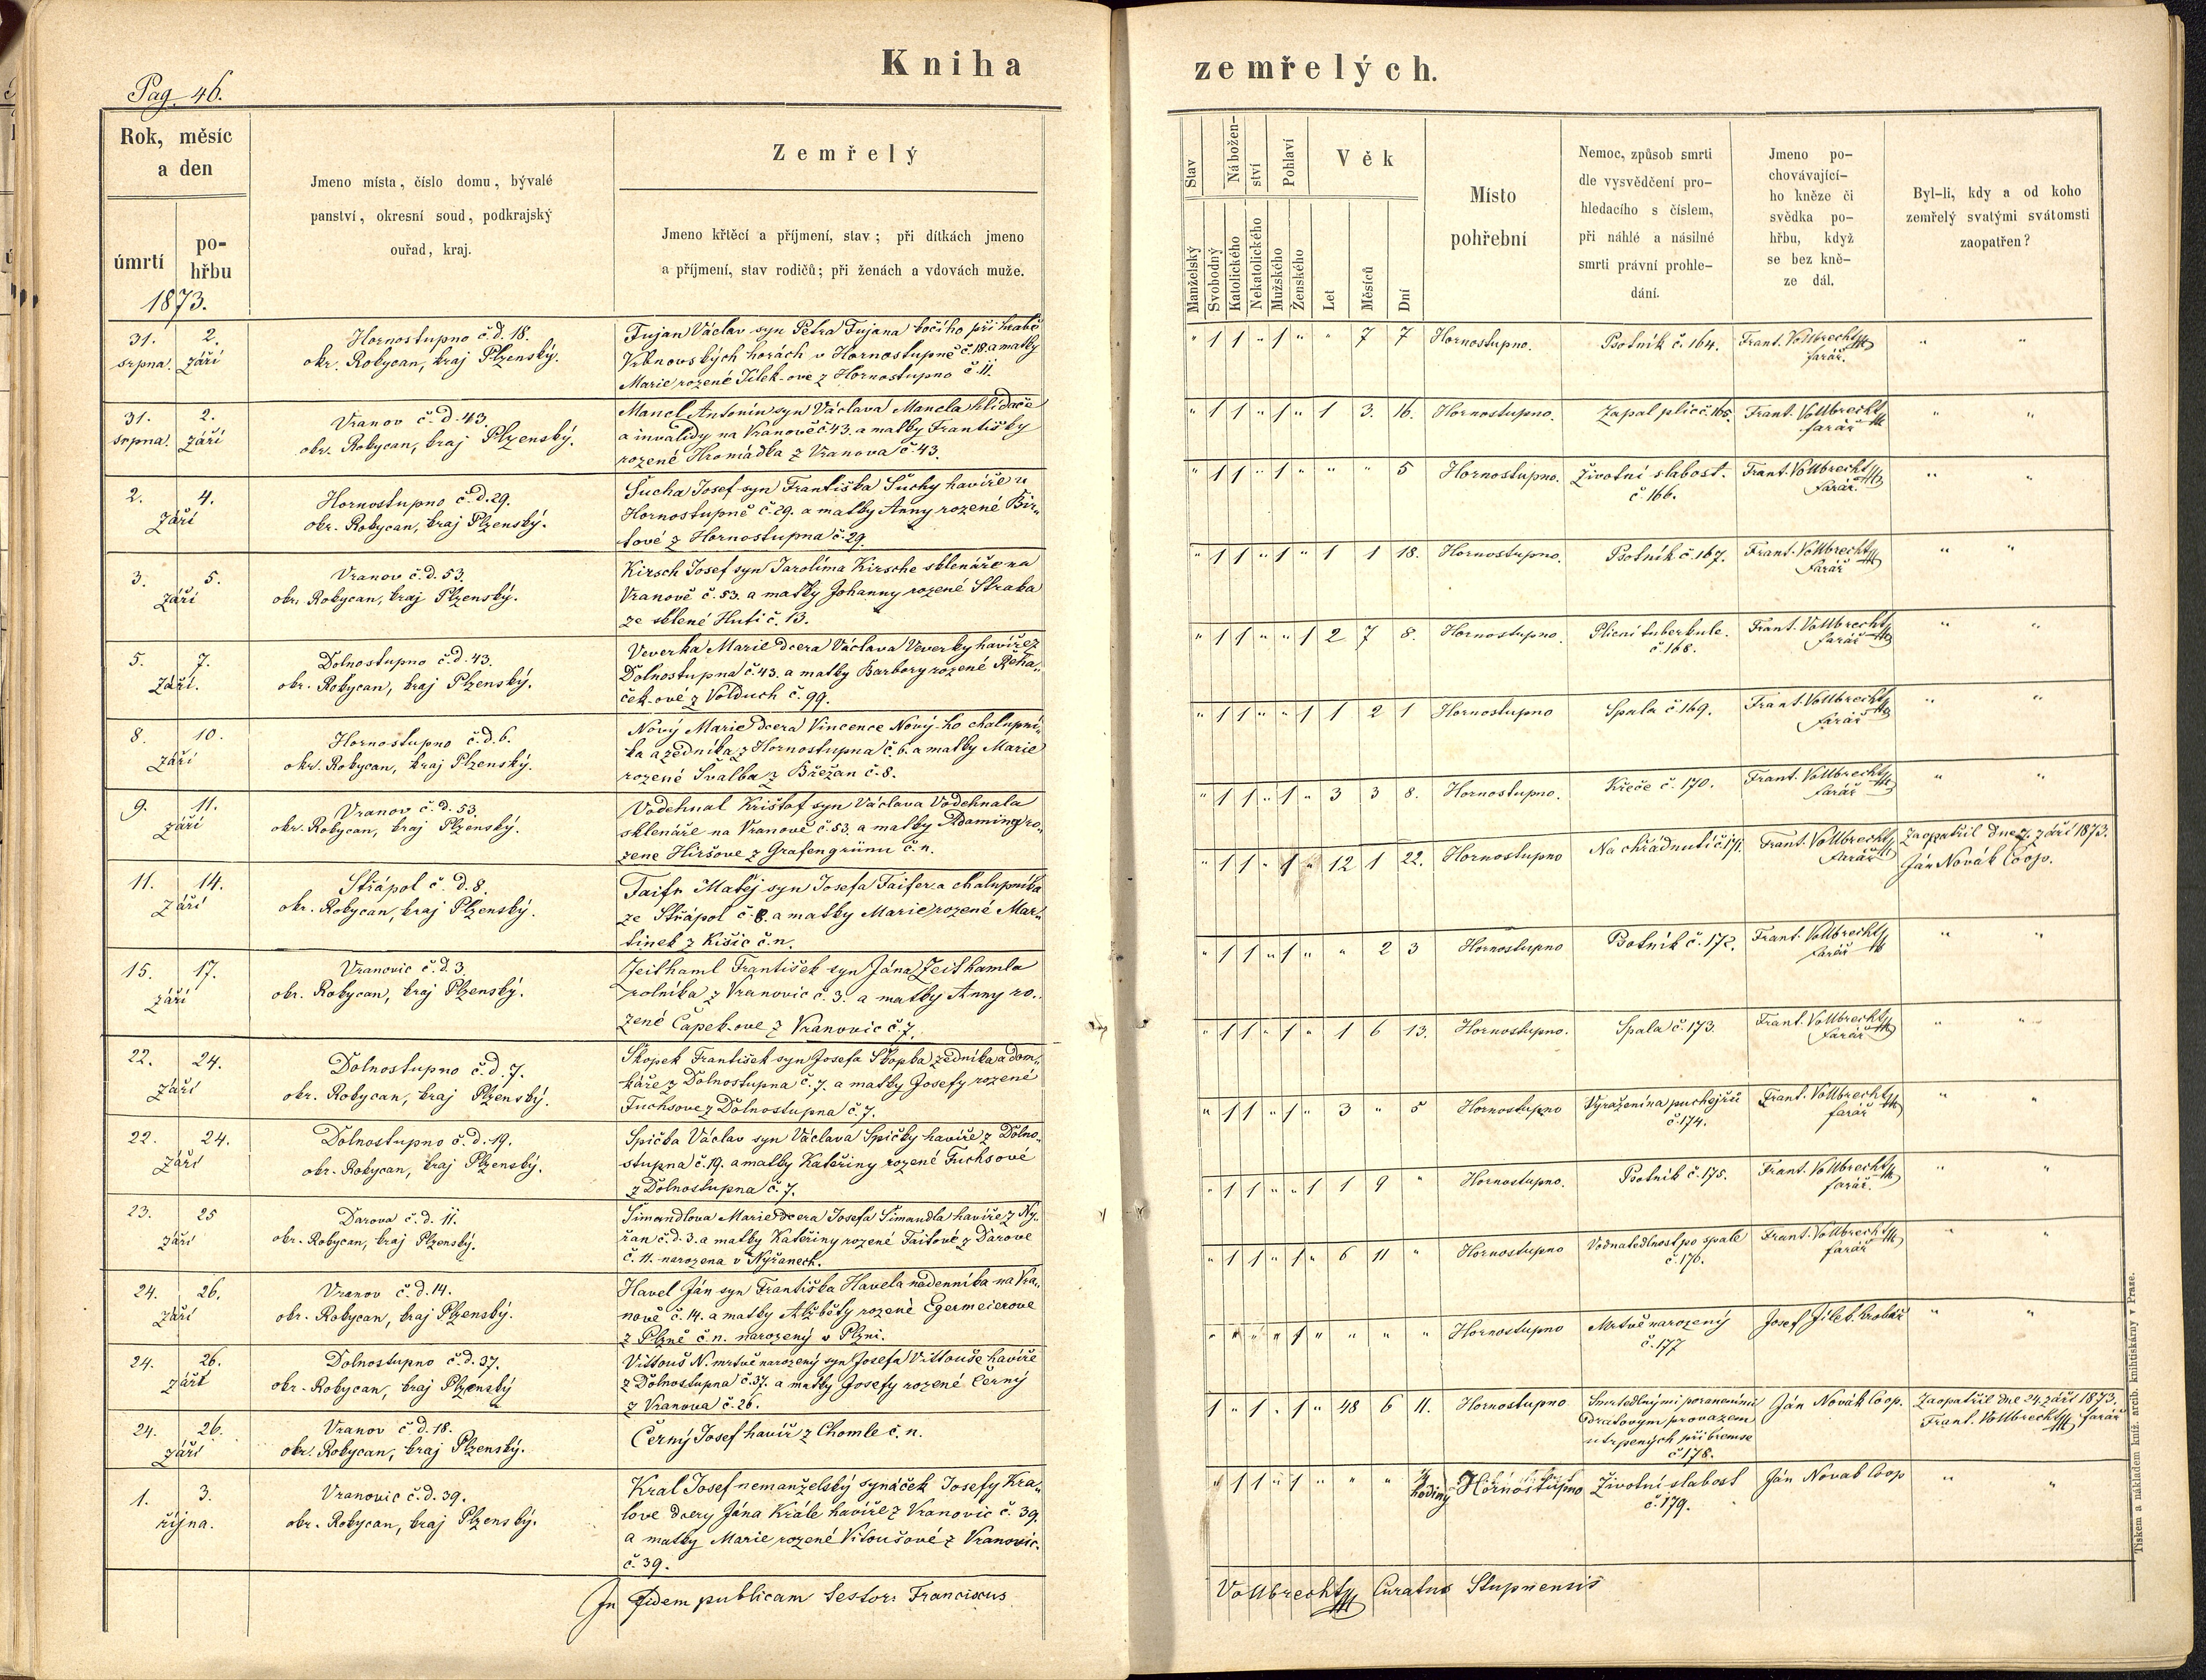 Kniha
zemřelých.
Pag. 46.
Rok, měsíc
a den
úmrtí
po-
hřbu
1873.
Jmeno místa, číslo domu, bývalé
panství, okresní soud, podkrajský
ouřad, kraj.
Zemřelý
Jmeno křtěcí a příjmení, stav; při dítkách jmeno
a příjmení, stav rodičů; při ženách a vdovách muže.
Stav
Nábožen-
ství
Pohlaví
Věk
Manželský
Svobodný
Katolického
Nekatolického
Mužského
Ženského
Let
Měsíců
Dní
Místo
pohřební
Nemoc, způsob smrti
dle vysvědčení pro-
hledacího s číslem,
při náhlé a násilné
smrti právní prohle-
dání.
Jmeno po-
chovávající-
ho kněze či
svědka po-
hřbu, když
se bez kně-
ze dál.
Byl-li, kdy a od koho
zemřelý svatými svátomsti
zaopatřen?
31. 2.
srpna. září
Hornostupno č.d. 18.
okr. Rokycan, kraj Plzenský.
Fujan Václav syn Petra Fujana kočího při hrabě
Vrbnovských horách v Hornostupně č. 18. a matky
Marie rozené Jílek-ové z Hornostupno č. 11.
" 1 1 " 1 " " 7 7 Hornostupno. Psotník č. 164. Frant. Vollbrecht
farář. " "
31. 2.
srpna. září
Vranov č. d. 43.
okr. Rokycan, kraj Plzenský.
Mancl Antonín syn Václava Mancla hlídače
a invalidy na Vranově č 43. a matky Františky
rozené Hromádka z Vranova č. 43.
" 1 1 " 1 " 1 3. 16. Hornostupno. Zapal plic č. 165. Frant. Vollbrecht
farář " "
2. 4.
září
Hornostupno č. d. 29.
okr. Rokycan, kraj Plzenský.
Sucha Josef syn Františka Suchy havíře v
Hornostupně č. 29. a matky Anny rozené Bir-
tové z Hornostupna č. 29.
" 1 1 " 1 " " " 5 Hornostupno. Životní slabost. Frant. Vollbrecht
č. 166. farář. " "
3. 5.
září
Vranov č. d. 53.
okr. Rokycan, kraj Plzenský.
Kirsch Josef syn Jarolíma Kirsche sklenáře na
Vranově č. 53. a matky Johanny rozené Straka
ze sklené Huti č. 13.
" 1 1 " 1 " 1 1 18. Hornostupno. Psotník č. 167. Frant. Vollbrecht
farář " "
5. 7.
září.
Dolnostupno č. d. 43.
okr. Rokycan, kraj Plzenský.
Veverka Marie dcera Václava Veverky havíře z
Dolnostupna č. 43. a matky Barbory rozené Řeha-
ček-ové z Volduch č. 99.
" 1 1 " " 1 2 7 8. Hornostupno. Plicní tuberkule. Frant. Vollbrecht
č. 168. farář " "
8. 10.
září
Hornostupno č. d. 6.
okr. Rokycan, kraj Plzenský.
Nový Marie dcera Vincence Nový-ho chalupní-
ka a zedníka z Hornostupna č. 6. a matky Marie
rozené Švalba z Břežan č. 8.
" 1 1 " " 1 1 2 1 Hornostupno Spala č. 169. Frant. Vollbrecht
farář " "
9. 11.
září
Vranov č. d. 53.
okr. Rokycan, kraj Plzenský.
Vodehnal Krištof syn Václava Vodehnala
sklenáře na Vranově č. 53. a matky Adaminy ro-
zene Hiršove z Grafengrünu č. n.
" 1 1 " 1 " 3 3 8. Hornostupno. Křeče č. 170. Frant. Vollbrecht
farář " "
11. 14.
září
Střápol č. d. 8.
okr. Rokycan, kraj Plzenský.
Faifr Matěj syn Josefa Faifera chalupníka
ze Střápol č. 8. a matky Marie rozené Mar-
tinek z Kišic č. n.
" 1 1 " 1 " 12 1 22. Hornostupno Na chřádnutí č. 171. Frant. Vollbrecht Zaopatřil dne 7. září 1873.
farář Ján Novák Coop.
15. 17.
září
Vranovic č. d. 3.
okr. Rokycan, kraj Plzenský.
Zeithaml František syn Jána Zeithamla
rolníka z Vranovic č. 3. a matky Anny ro-
zené Čapek-ove z Vranovic č. 7.
" 1 1 " 1 " " 2 3 Hornostupno Psotník č. 172. Frant. Vollbrecht
farář " "
22. 24.
září
Dolnostupno č. d. 7.
okr. Rokycan, kraj Plzenský.
Skopek František syn Josefa Skopka zedníka a dom-
káře z Dolnostupna č. 7. a matky Josefy rozené
Fuchsove z Dolnostupna č. 7.
" 1 1 " 1 " 1 6 13. Hornostupno. Spala č. 173. Frant. Vollbrecht
farář " "
22. 24.
září
Dolnostupno č. d. 19.
okr. Rokycan, kraj Plzenský.
Spička Václav syn Václava Spičky havíře z Dolno-
stupna č. 19. a matky Kateřiny rozené Fuchsové
z Dolnostupna č. 7.
" 1 1 " 1 " 3 " 5 Hornostupno Vyraženína puchejřů Frant. Vollbrecht
č. 174. farář " "
23. 25
září
Darova č. d. 11.
okr. Rokycan, kraj Plzenský.
Šimandlova Marie dcera Josefa Šimandla havíře z Ny-
řan č. d. 3. a matky Kateřiny rozené Taitové z Darove
č. 11. narozena v Nyřanech.
" 1 1 " " 1 1 9 " Hornostupno. Psotník č. 175. Frant. Vollbrecht
farář. " "
24. 26.
září
Vranov č. d. 14.
okr. Rokycan, kraj Plzenský.
Havel Ján syn Františka Havela nadenníka na Vra-
nově č. 14. a matky Alžběty rozené Egermeierove
z Plzně č. n. narozený v Plzni.
" 1 1 " 1 " 6 11 " Hornostupno Vodnatedlnost po spale Frant. Vollbrecht
č. 176. farář " "
24. 26.
září
Dolnostupno č. d. 37.
okr. Rokycan, kraj Plzenský
Vittouš N. mrtvě narozený syn Josefa Vittouše havíře
z Dolnostupna č. 37. a matky Josefy rozené Černý
z Vranova č. 26.
" " " " 1 " " " " Hornostupno Mrtvě narozený Josef Jílek hrobář " "
č. 177
24. 26.
září
Vranov č. d. 18.
okr. Rokycan, kraj Plzenský.
Černý Josef havíř z Chomle č. n.
1 " 1 " 1 " 48 6 11. Hornostupno Smrtedlnými poraněními Ján Novák Coop. Zaopatřil dne 24. září 1873.
dratovým provazem Frant. Vollbrecht farář
utrpených při bremse
č 178.
1. 3.
října.
Vranovic č. d. 39.
okr. Rokycan, kraj Plzenský.
Kral Josef nemanželský synáček Josefy Kra-
love dcery Jána Krále havíře z Vranovic č. 39.
a matky Marie rozené Vitoušové z Vranovic.
č. 39.
" 1 1 " 1 " " " hodiny Hornostupno Životní slabost Ján Novák Coop " "
č. 179.
In Fidem publicam testor: Franciscus
Vollbrecht Curatus Stupnensis
Tiskem a nákladem kníž. arcib. knihtiskárny v Praze.